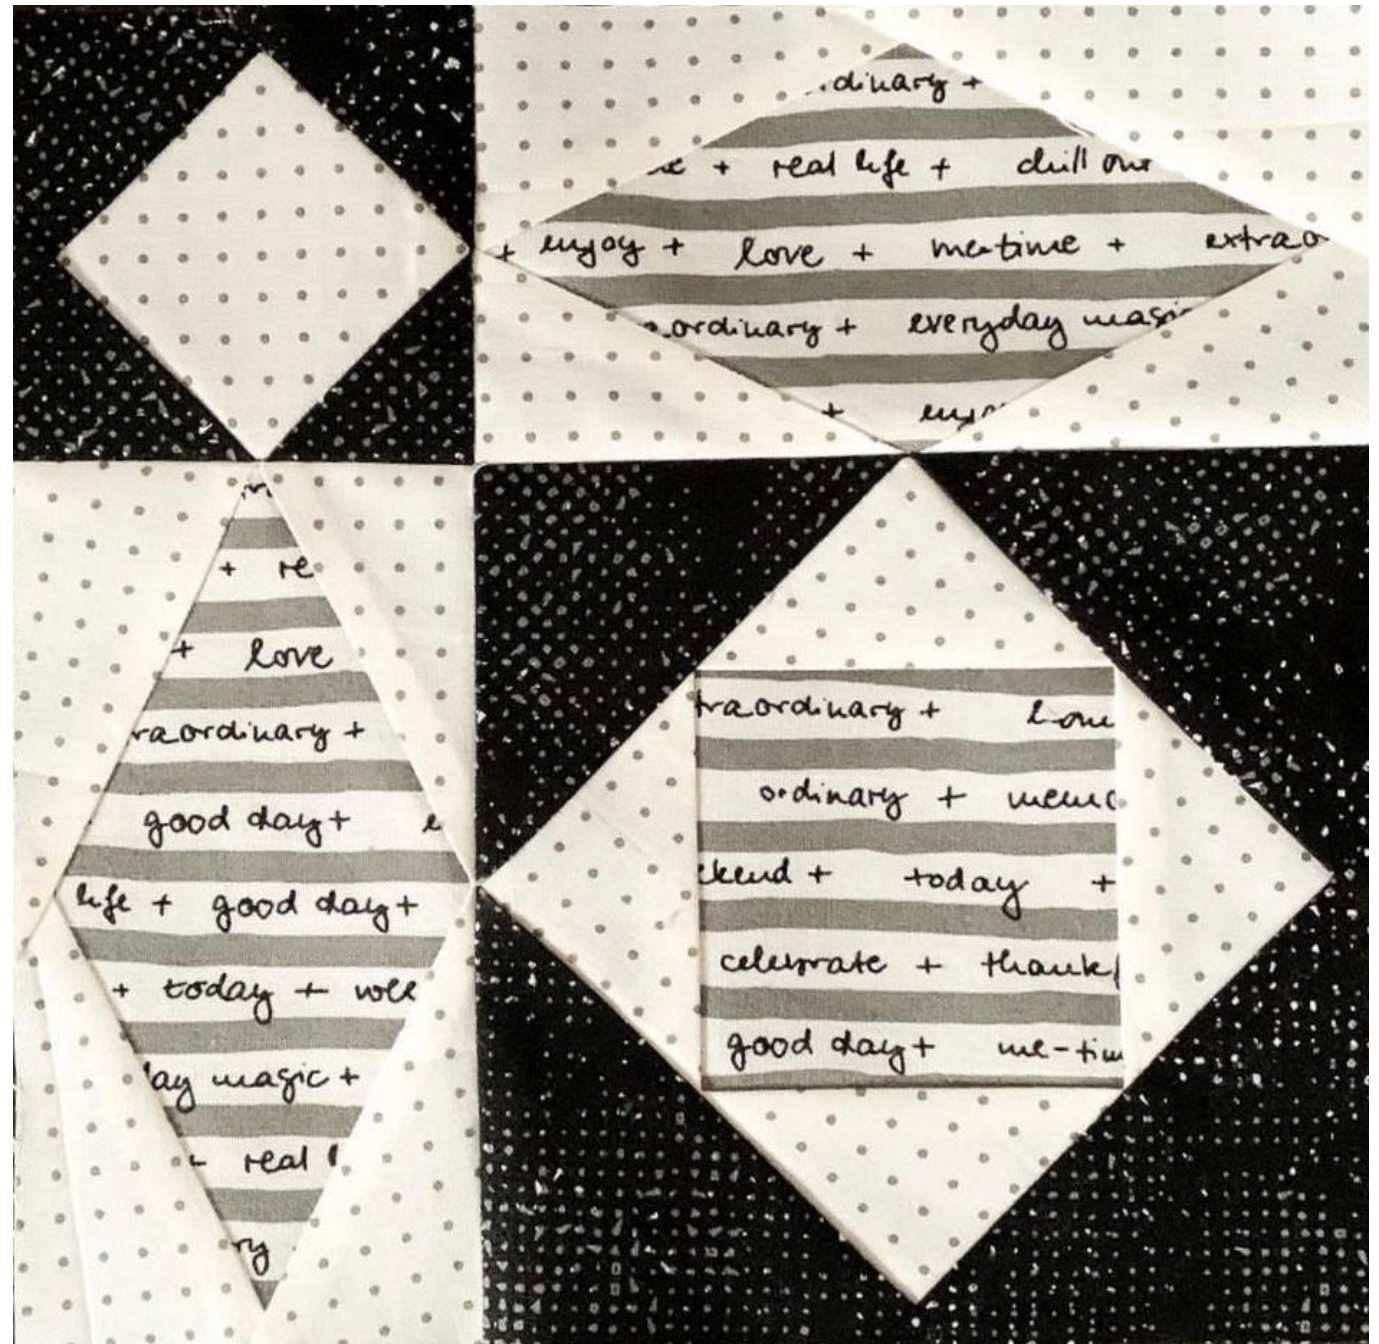 dinary +
+ real life + chill out
+ enjoy + love + me-time + extrao
ordinary + everyday magic
+ enjo
+ re
+ love
raordinary +
good day +
life + good day +
+ today + wee
ay magic +
real l
ry
traordinary + home
ordinary + meme
ekend + today +
celebrate + thankf
good day + me-tim